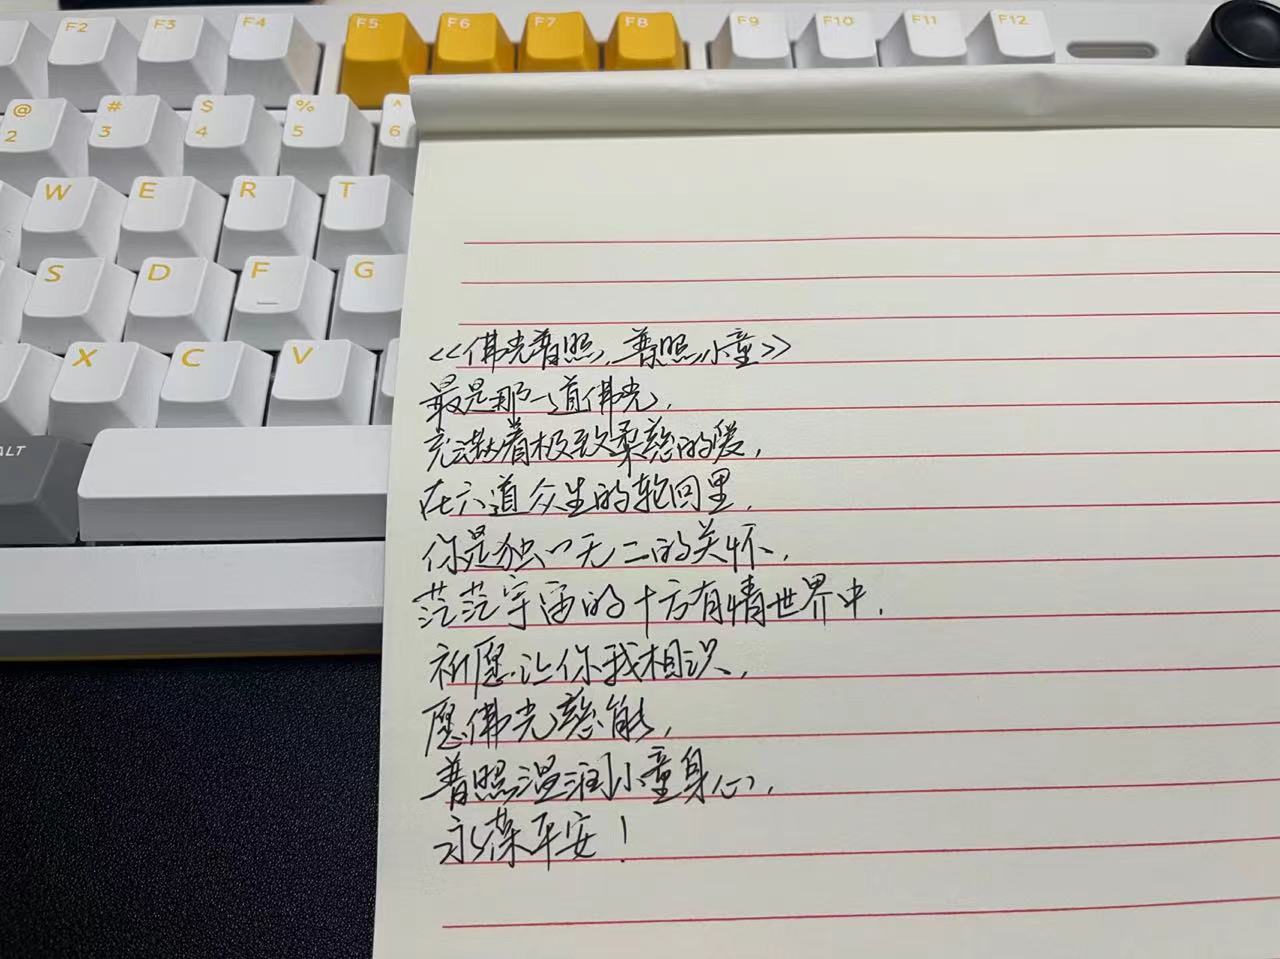 F2 F3 F4 F5 F6 F7 F8 F9 F10 F11 F12
@ # $ % ^
2 3 4 5 6
W E R T
S D F G
X C V
ALT
<<佛光普照,普照小童>>
最是那一道佛光,
充满着极致柔慈的爱,
在六道众生的轮回里,
你是独一无二的关怀,
茫茫宇宙的十方有情世界中,
祈愿让你我相识,
愿佛光慈能,
普照温润小童身心,
永葆平安!